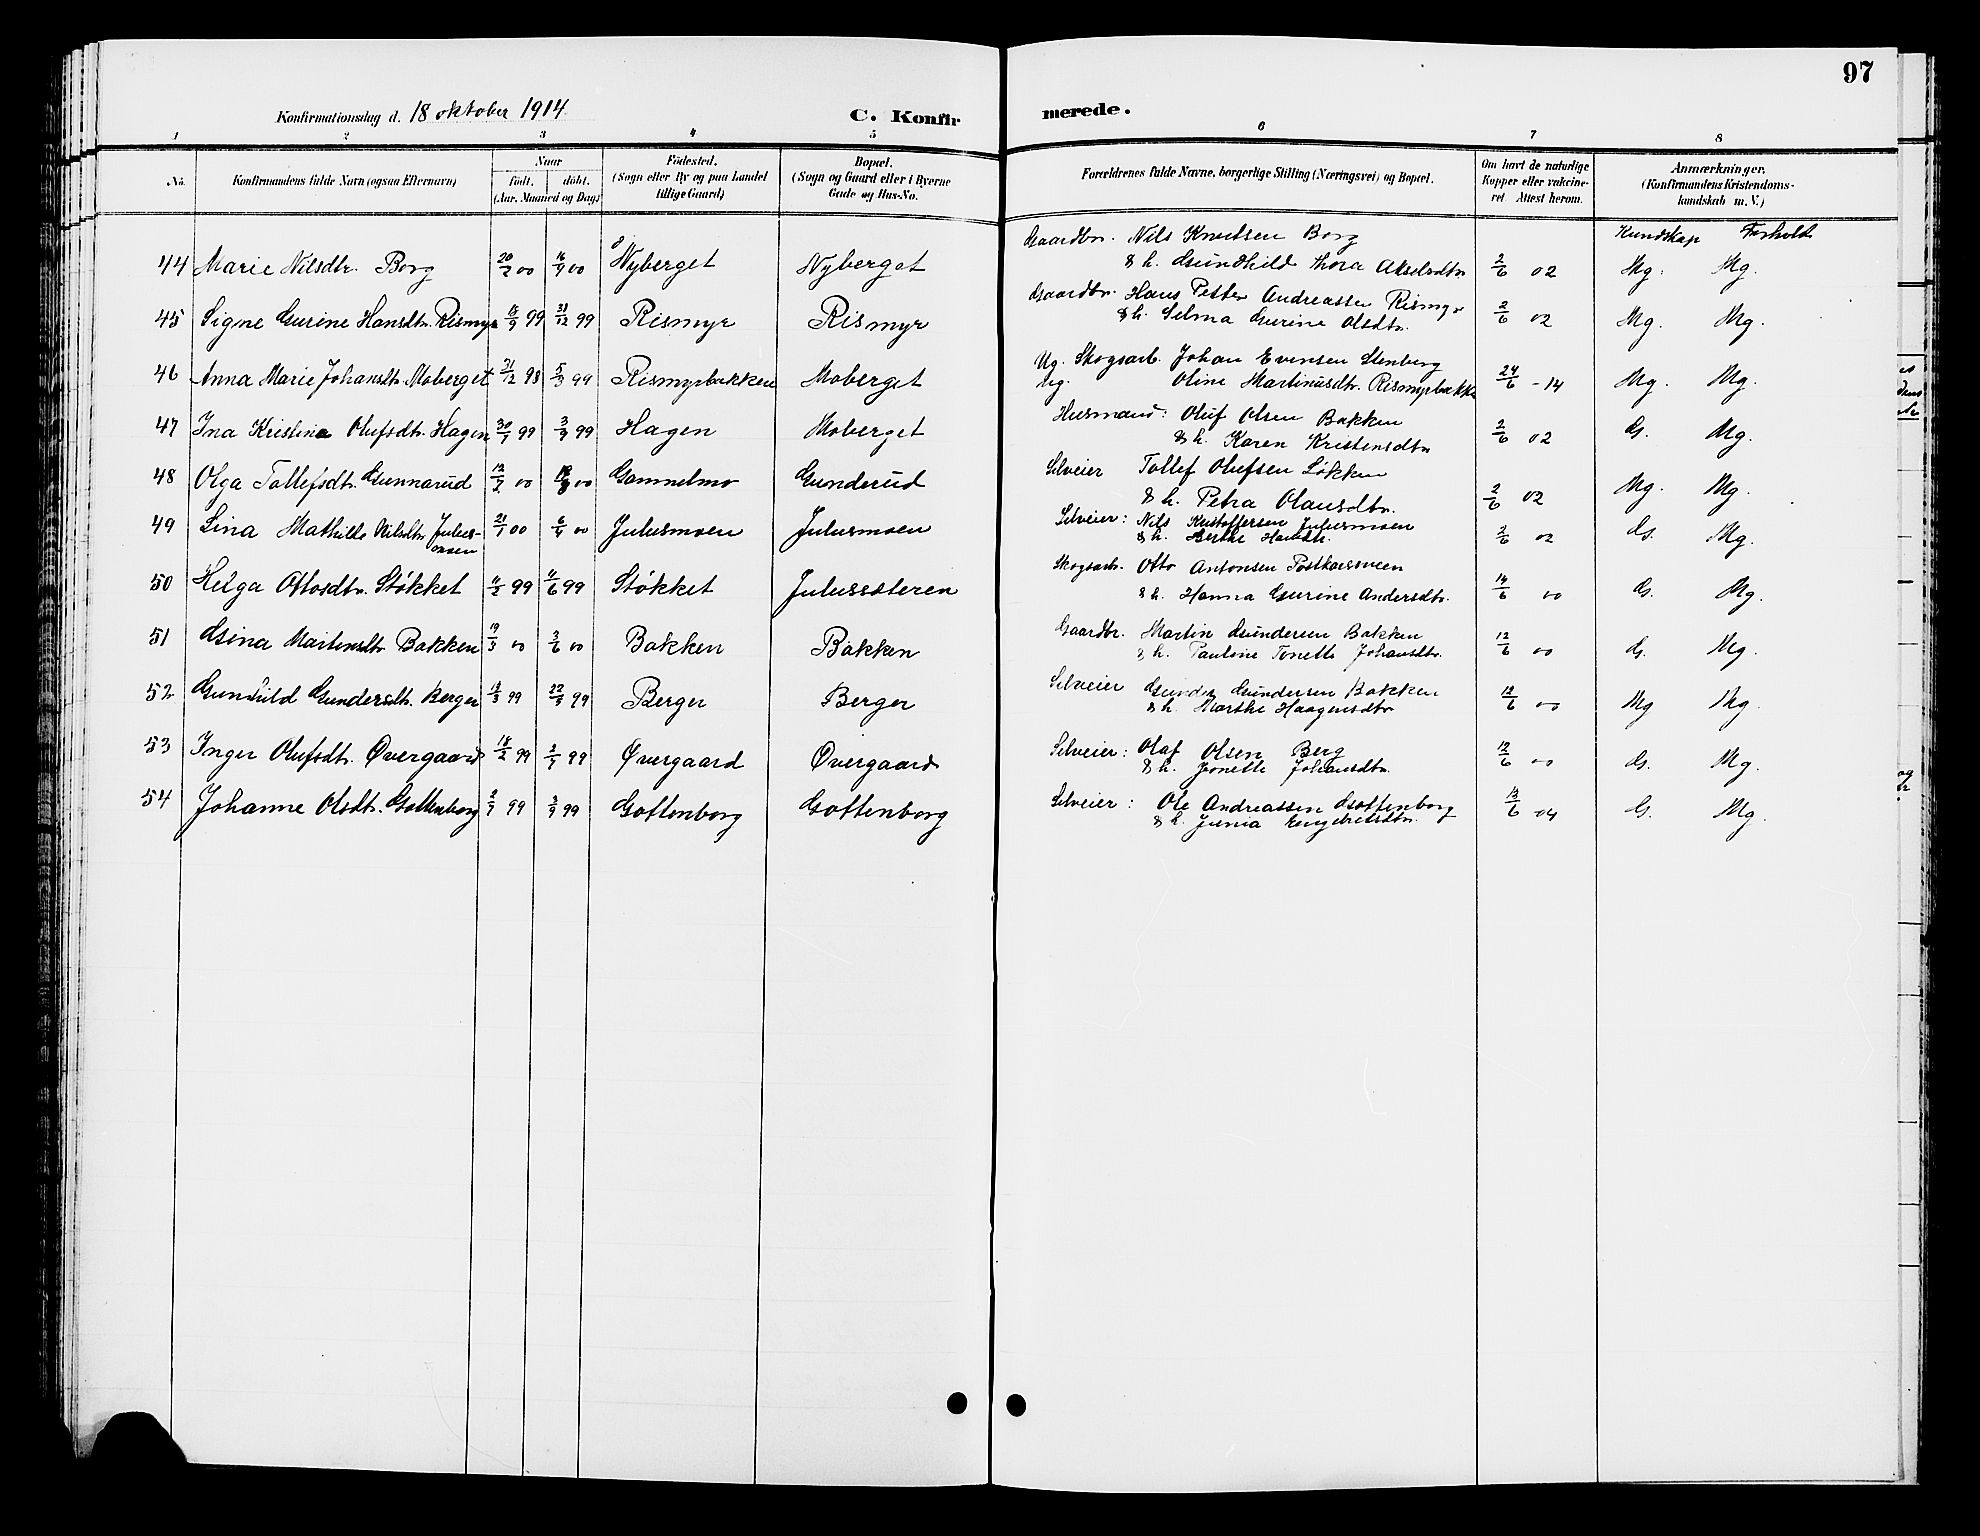 97
Konfirmationsdag d. 18 oktober 1914
C. Konfirmerede.
1 2 3 4 5 6 7 8
No. Konfirmandens fulde Navn (ogsaa Efternavn) Naar födt. döbt. (Aar, Maaned og Dag) Födested. (Sogn eller By og paa Landet tillige Gaard) Bopæl. (Sogn og Gaard eller i Byerne Gade og Hus-No. Forældrenes fulde Navne, borgerlige Stilling (Næringsvei) og Bopæl. Om havt de naturlige Kopper eller vakcineret. Attest herom. Anmærkninger. (Konfirmandens Kristendomskundskab m. V.)
Kundskap Forhold
Gaardbr. Nils Knutsen Borg
44 Marie Nilsdtr. Borg 20/2 00 16/4 00 Nyberget Nyberget & h. Gundhild Thora Akselsdtr 2/6 02 Mg. Mg.
Gaardbr. Hans Petter Andreassen Rismyr
45 Signe Gurine Hansdtr. Rismyr 15/9 99 31/12 99 Rismyr Rismyr & h. Selma Gurine Olsdtr. 2/6 02 Mg. Mg.
Ug. Skogsarb. Johan Evensen Stenberg
46 Anna Marie Johansdtr. Moberget 31/12 98 5/3 99 Rismyrbakken Moberget Ug. Oline Martinusdtr. Rismyrbakk 24/6 - 14 Mg. Mg.
Husmand: Oluf Olsen Bakken
47 Ina Kristine Olufsdtr. Hagen 30/1 99 3/4 99 Hagen Moberget & h. Karen Kristensdtr 2/6 02 G. Mg.
Selveier Tollef Olufsen Løkken
48 Olga Tollefsdtr. Gunnarud 00 00 Gammelmo Gunderud & h. Petra Olausdtr. 2/6 02 Mg. Mg.
Selveier: Nils Kristoffersen Julusmoen
49 Lina Mathilde Nilsdtr. Julusmoen 21/1 00 6/4 00 Julusmoen Julusmoen & h. Berthe Hansdtr. 2/6 02 G. Mg.
Skogsarb. Otto Antonsen
50 Helga Ottosdtr. Støkket 11/2 99 11/6 99 Støkket Julussæteren & h. Hanna Gurine Andersdtr. 14/6 00 G. Mg.
Gaardbr. Martin Gundersen Bakken
51 Gina Martinsdtr Bakken 19/3 00 3/6 00 Bakken Bakken & h. Pauline Tonette Johansdtr. 12/6 00 G. Mg.
Selveier Gunder Gundersen Bakken
52 Gunhild Gundersdtr. Berger 18/3 99 99 Berger Berger & h. Marthe Haagensdtr 12/6 00 Mg Mg.
Selveier: Olaf Olsen Berg
53 Inger Olufsdtr. Øvergaard 18/2 99 99 Øvergaard Øvergaard & h. Jonette Johansdtr. 12/6 00 G. Mg.
Selveier: Ole Andreassen Gottenborg
54 Johanne Olsdtr. Gottenborg 99 99 Gottenborg Gottenborg & h. Junia Engebretsdtr. 13/6 04 G. Mg.